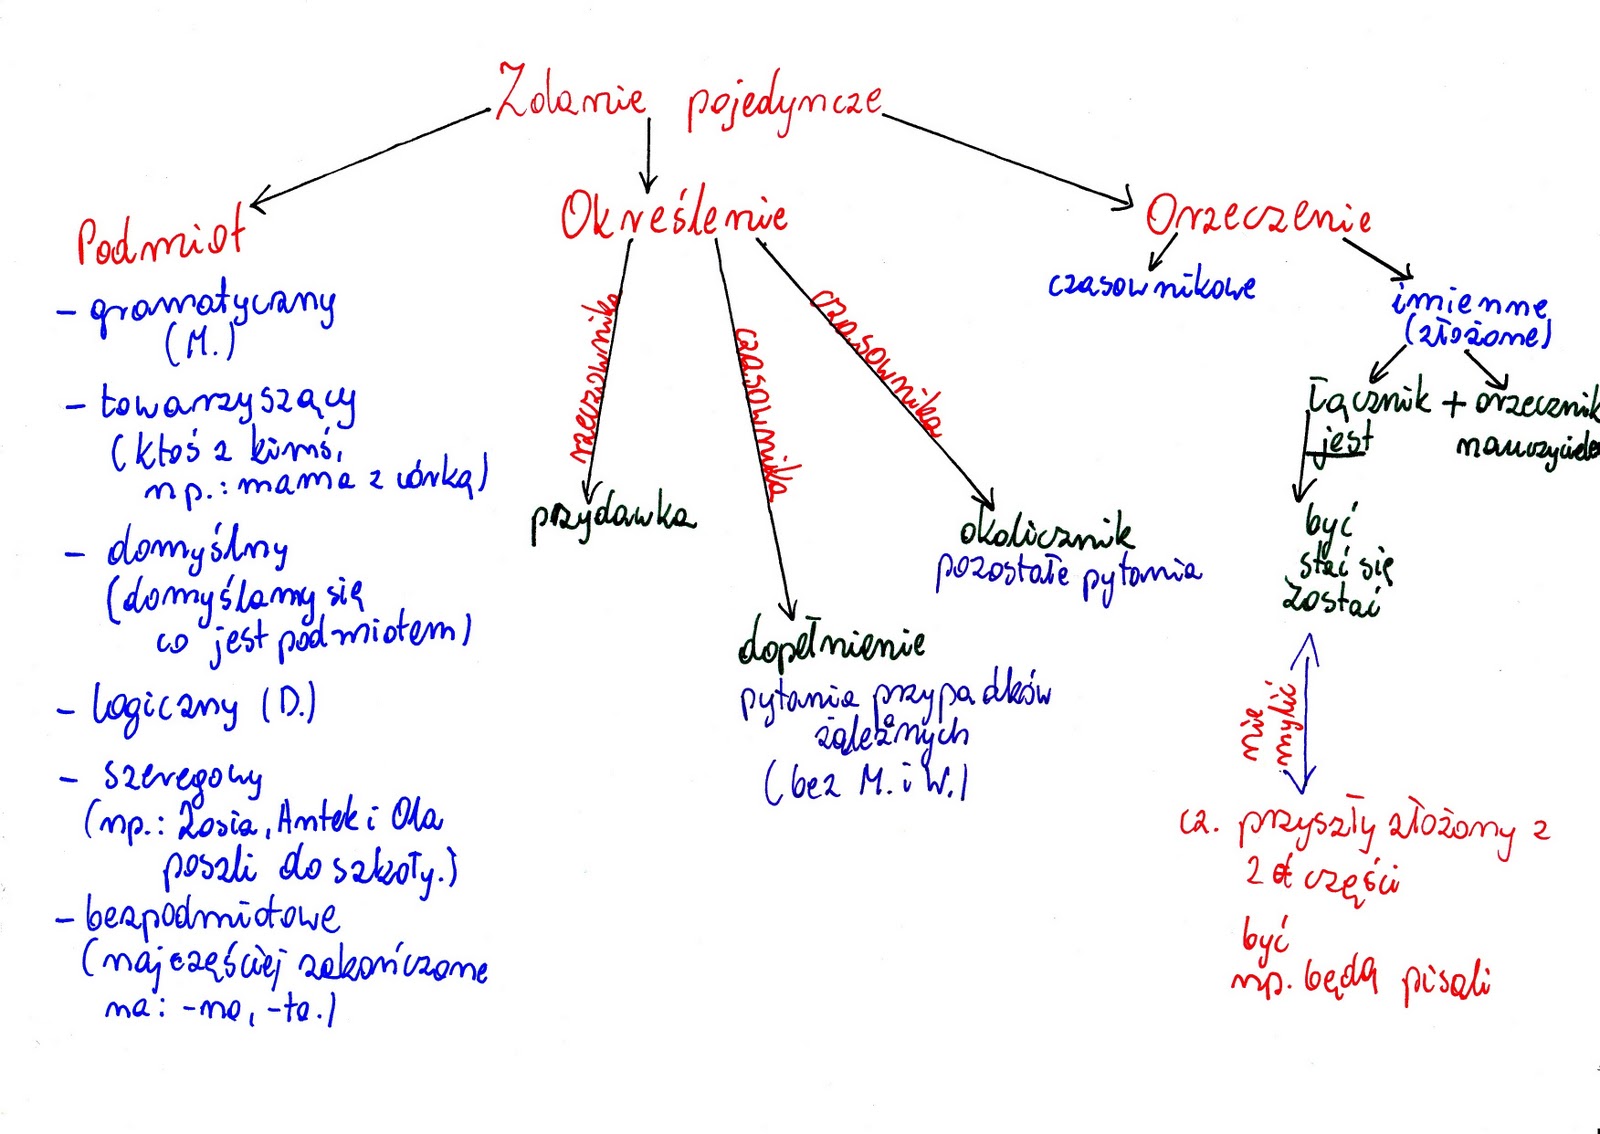 Zdanie pojedyncze
Podmiot
- gramatyczny
(M.)
- towarzyszący
(ktoś z kimś,
np.: mama z córką)
- domyślny
(domyślamy się
co jest podmiotem)
- logiczny (D.)
- szeregowy
(np.: Zosia, Antek i Ola
poszli do szkoły.)
- bezpodmiotowe
(najczęściej zakończone
na: -no, -to.)
Określenie
rzeczownika
przydawka
czasownika
dopełnienie
pytania przypadków
zależnych
(bez M. i W.)
czasownika
okolicznik
pozostałe pytania
Orzeczenie
czasownikowe
imienne
(złożone)
łącznik + orzecznik
jest
być
stać się
zostać
nie
mylić
cz. przyszły złożony z
2 części
być
np. będą pisali